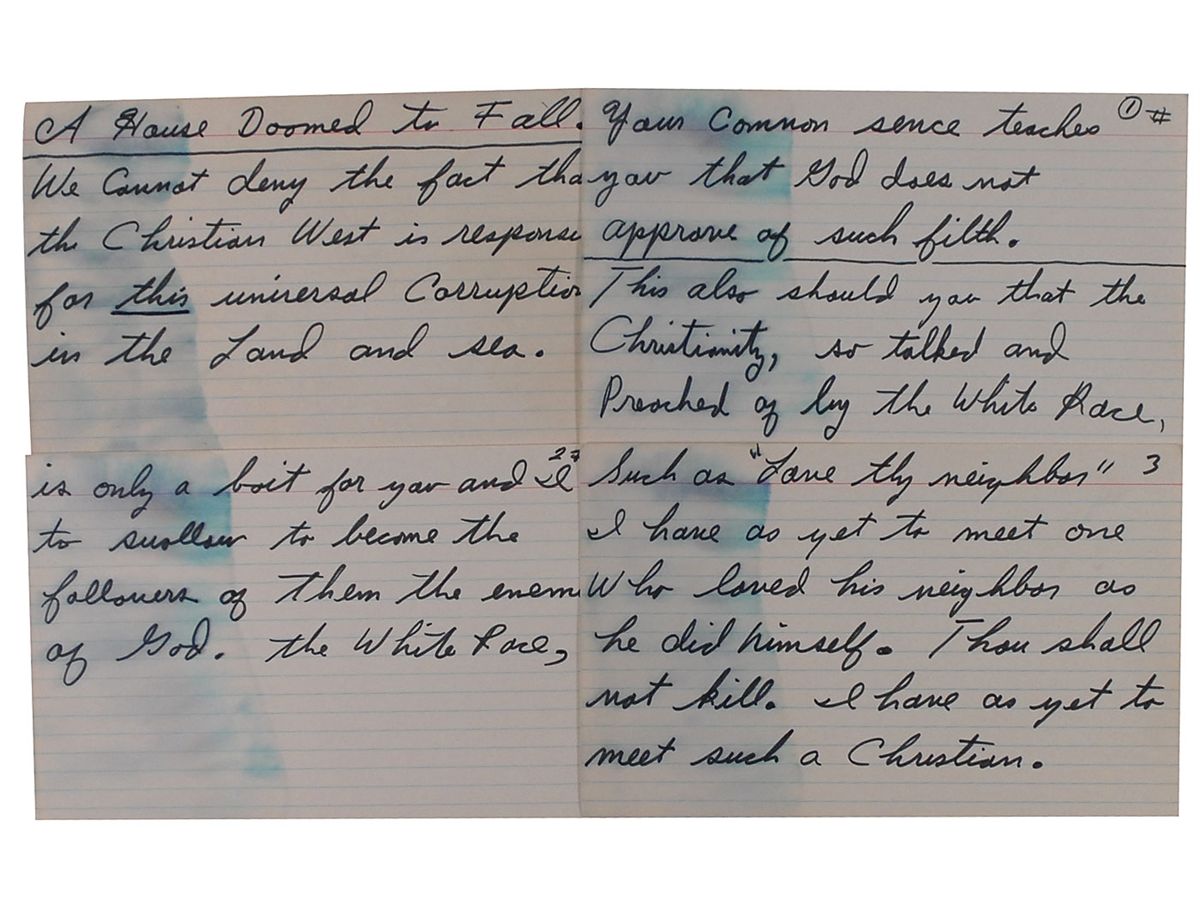 A House Doomed to Fall.
We Cannot deny the fact tha
the Christian West is responsi
for this universal Corruption
in the Land and sea.
Your Common sence teaches ① #
you that God does not
approve of such filth.
This also should you that the
Christianity, so talked and
Preached of by the White Race,
2 #
is only a bait for you and I
to swallow to become the
followers of them the enem
of God. the White Race,
Such as "Love thy neighbor" 3
I have as yet to meet one
Who loved his neighbor as
he did himself. Thou shall
not kill. I have as yet to
meet such a Christian.